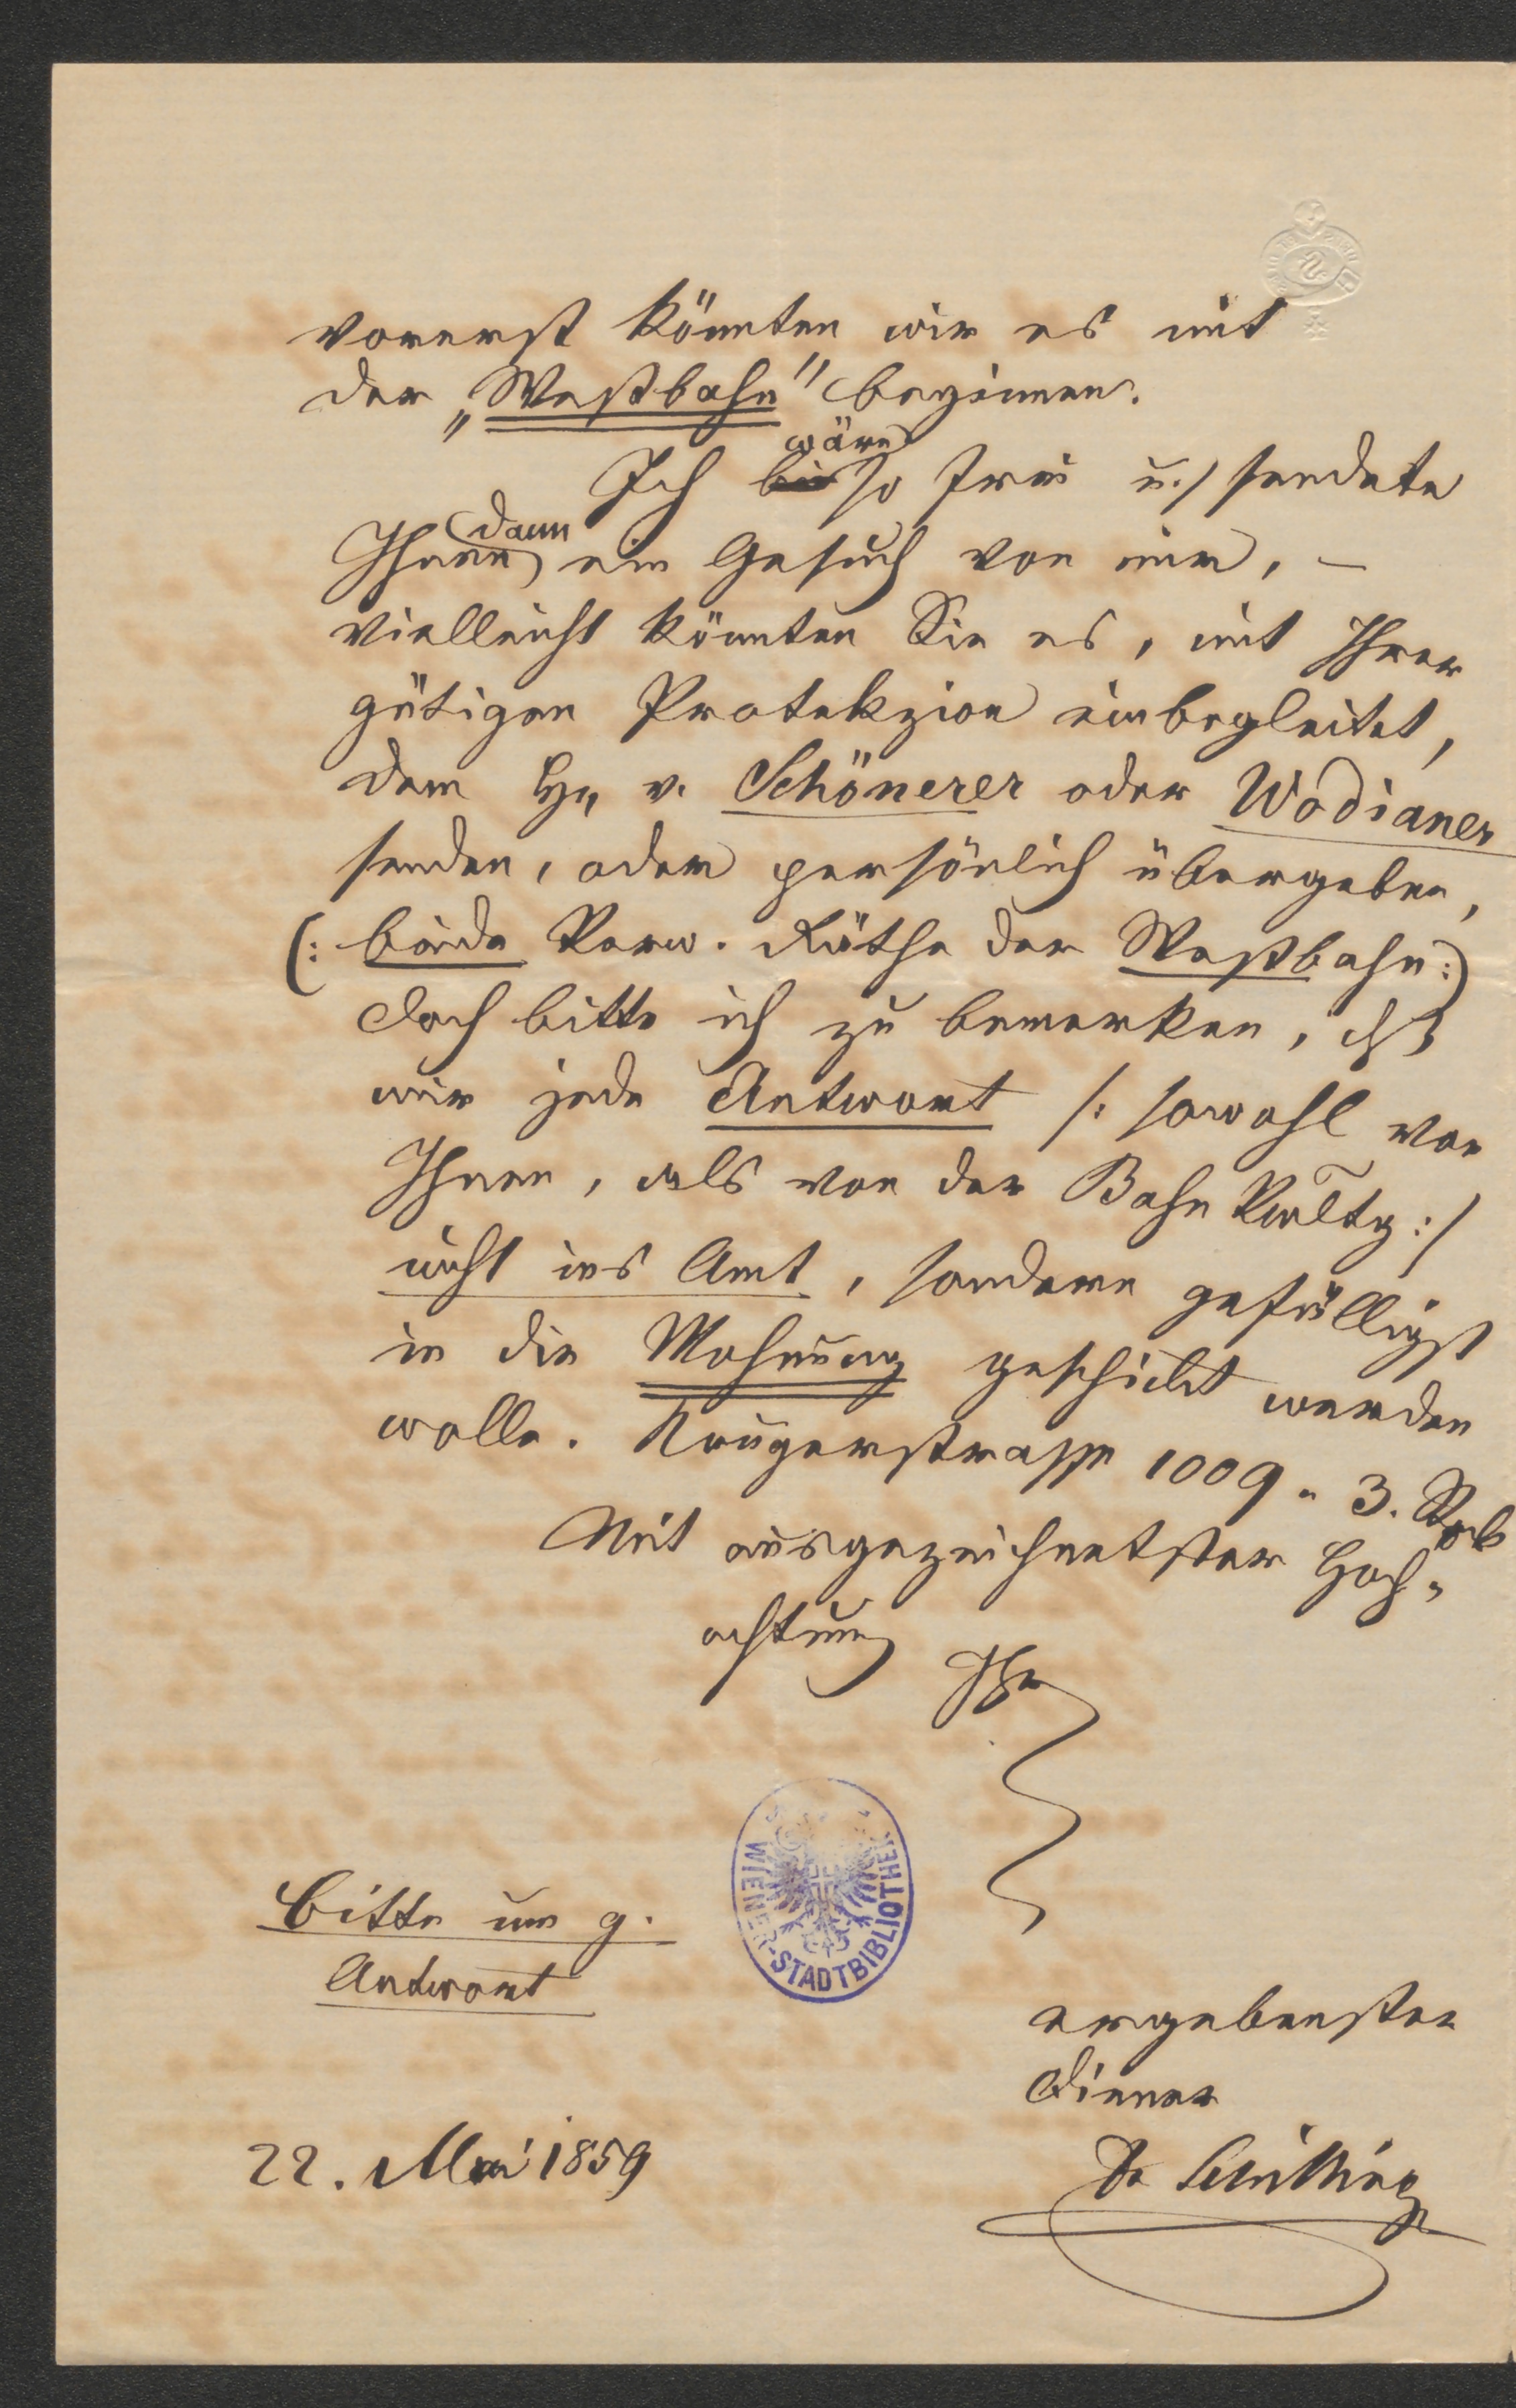 vorerst könnten wir es mit
der „Westbahn" beginnen.
Ich wäre so frei u. sendete
Ihnen dann ein Gesuch von mir, –
vielleicht könnten Sie es, mit Ihrer
gütigen Protekzion einbegleitet,
dem H. v. Schönerer oder Wodianer
senden, oder persönlich übergeben,
(: beide Verw. Räthe der Westbahn :)
Doch bitte ich zu bemerken, dß
mir jede Antwort /: sowohl von
Ihnen, als von der Bahn Vwltg :/
nicht ins Amt, sondern gefälligst
in die Wohnung geschickt werden
wolle. Krugerstrasse 1009. 3. Stock
Mit ausgezeichnetster Hoch-
achtung
Ihr
Bitte um g.
Antwort
WIENER-STADTBIBLIOTHEK
ergebenster
Diener
Dr Schilling
22. Mai 1859